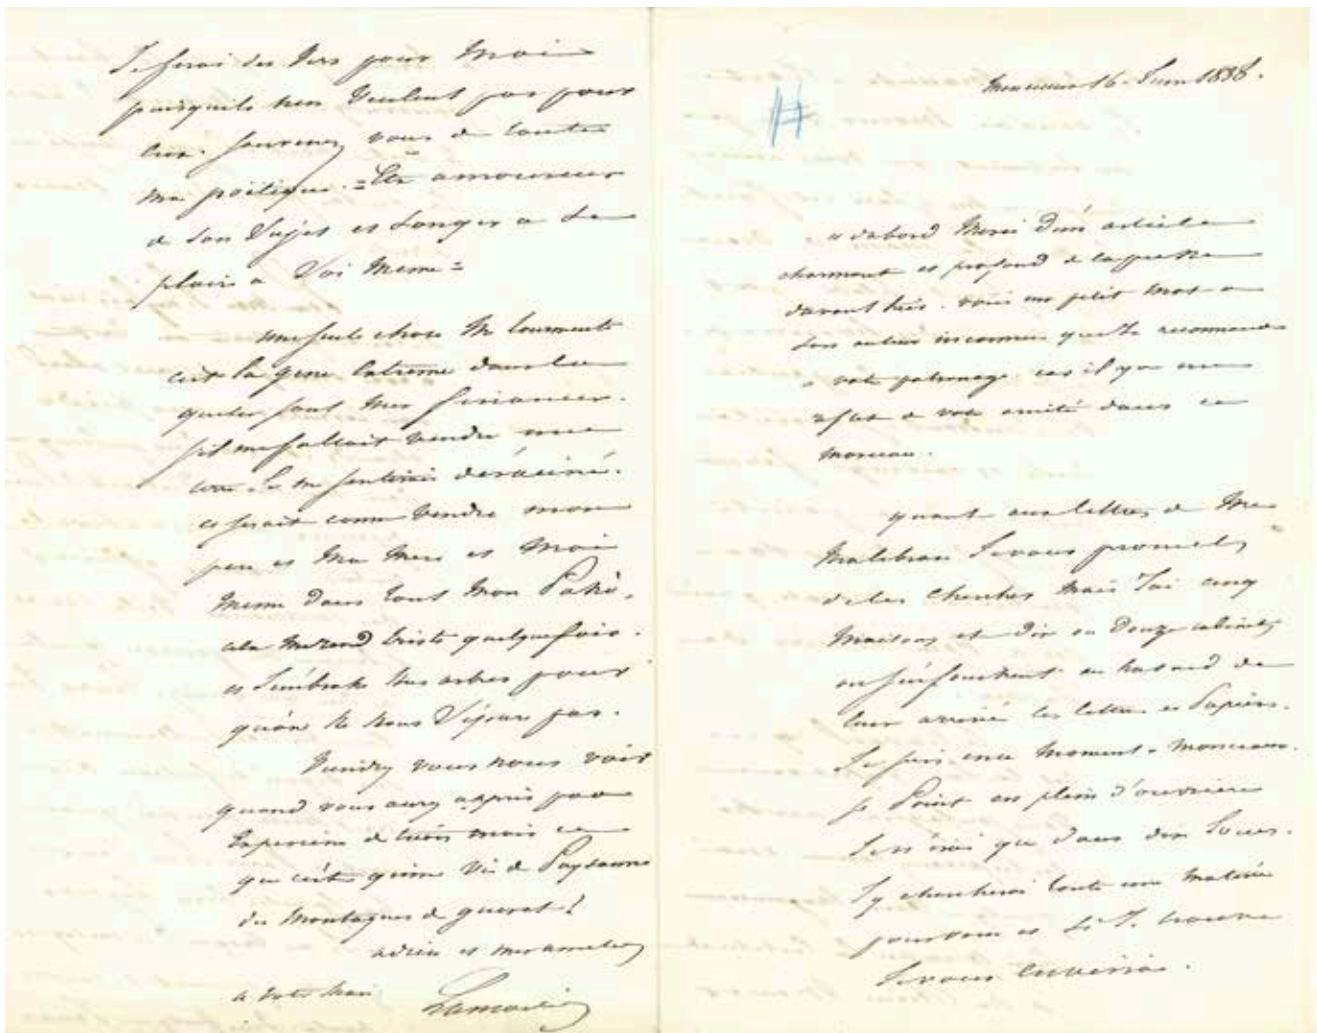 Je ferai des Vers pour Moi
puisquils nen Veulent pas pour
eux. souvenez vous de toute
ma poëtique. = Etre amoureux
de son Sujet et songer a se
plaire a Soi Meme =
une seule chose Me tourmente
c'est la gene extreme dans les
quelles sont Mes finances.
s'il me fallait vendre une
terre Je me sentirais déraciné.
ce serait comme Vendre mon
pere et Ma Mere et Moi
Meme dans tout Mon Passé.
cela Me rend triste quelquefois.
et J'embrasse Mes arbres pour
qu'on ne Nous Sépare pas.
Viendrez vous nous voir
quand vous aurez appris par
Experience de trois mois ce
que c'est qu'une Vie de Paysanne
des Montagnes de gueret?
adieu et mes amitiés
a votre Mari
Lamartine
Monceau 16. Juin 1838.
#
dabord Merci d'un article
charmant et profond de la presse
davant hier. voici un petit Mot a
son auteur inconnu que Je recommande
a votre patronage car il y a un
reflet de votre amitié dans ce
morceau.
quant aux lettres de Me
Malibran Je vous promets
de les Chercher Mais J'ai cinq
Maisons et dix ou Douze cabinets
ou s'enfouissent au hasard de
leur arrivée les lettres et Papiers.
Je suis en ce Moment a Monceau.
St Point est plein d'ouvriers
Je n'irai que dans dix Jours.
J'y chercherai toute une Matinée
pour vous et Si J. trouve
Je vous Enverrai.